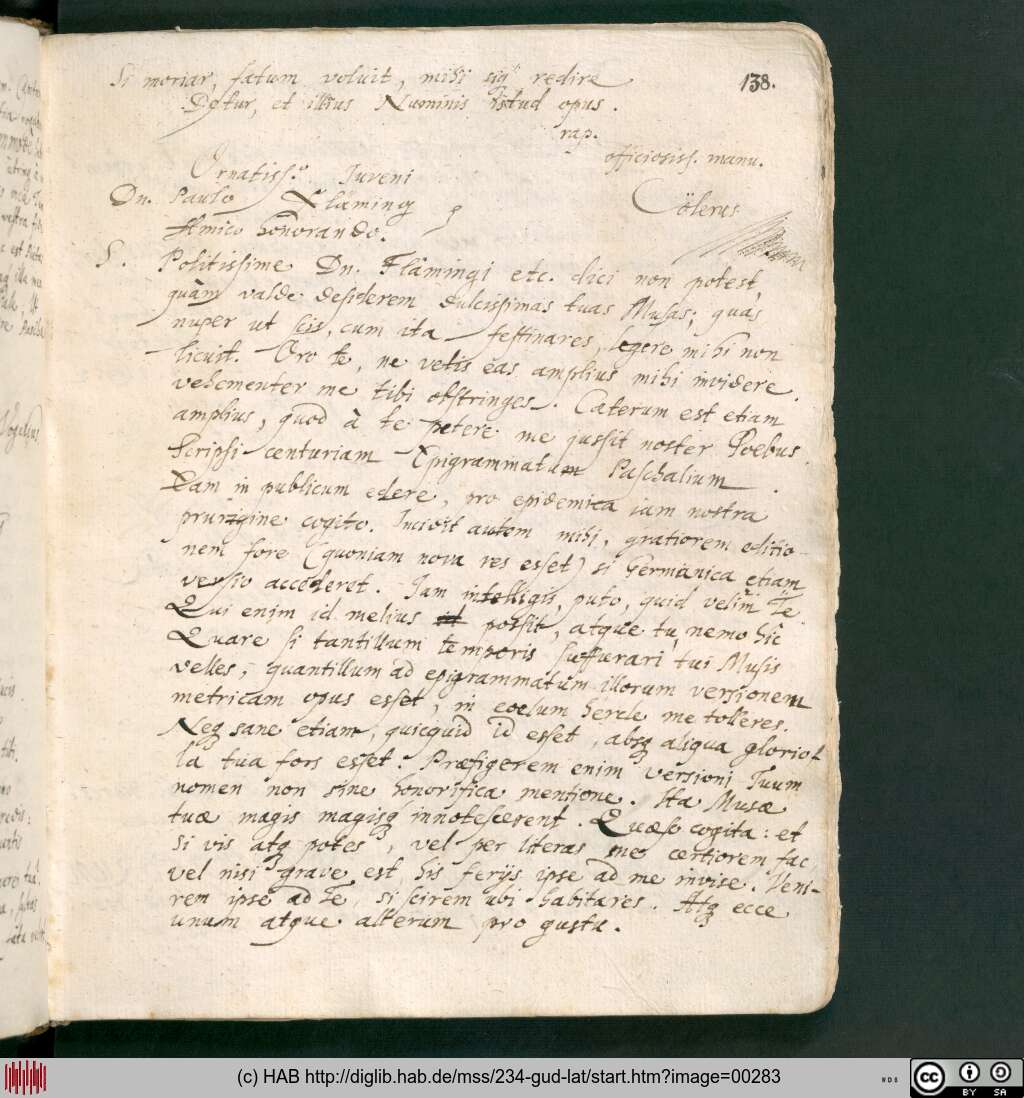 138.
Si moriar, fatum voluit, mihi redire
Detur, et illius Numinis istud opus.
rap.
officiosiss. manu.
Cölerus
Ornatiss.o Iuveni
Dn. Paulo Fläming
Amico honorando.
S. Politissime Dn. Flämingi etc. dici non potest,
quàm valde desiderem dulcissimas tuas Musas; quas
nuper ut scis, cum ita festinares, legere mihi non
licuit. Oro te, ne velis eas amplius mihi invidere.
vehementer me tibi obstringes. Cæterum est etiam
amplius, quod à te petere me jussit noster Phoebus.
Scripsi centuriam Epigrammatum Paschalium.
Eam in publicum edere, pro epidemica iam nostra
prurigine cogito. Incidit autem mihi, gratiorem editio-
nem fore (quoniam nova res esset) si Germanica etiam
versio accederet. Iam intelligis, puto, quid velim Te.
Qui enim id melius possit, atque tu, nemo hîc
Quare si tantillum temporis suffurari tui Musis
velles, quantillum ad epigrammatum illorum versionem
metricam opus esset, in coelum hercle me tolleres.
Neq sane etiam, quicquid id esset, absq aliqua gloriol
la tua fors esset. Præfigerem enim versioni Tuum
nomen non sine honorifica mentione. Ita Musæ
tuæ magis magisq innotescerent. Quæso cogita: et
si vis atq potes, vel per literas me certiorem fac,
vel nisi grave est his ferijs ipse ad me invise. Veni-
rem ipse ad Te, si scirem ubi habitares. Atq ecce
unum atque alterum pro gustu.
(c) HAB http://diglib.hab.de/mss/234-gud-lat/start.htm?image=00283
cc BY SA